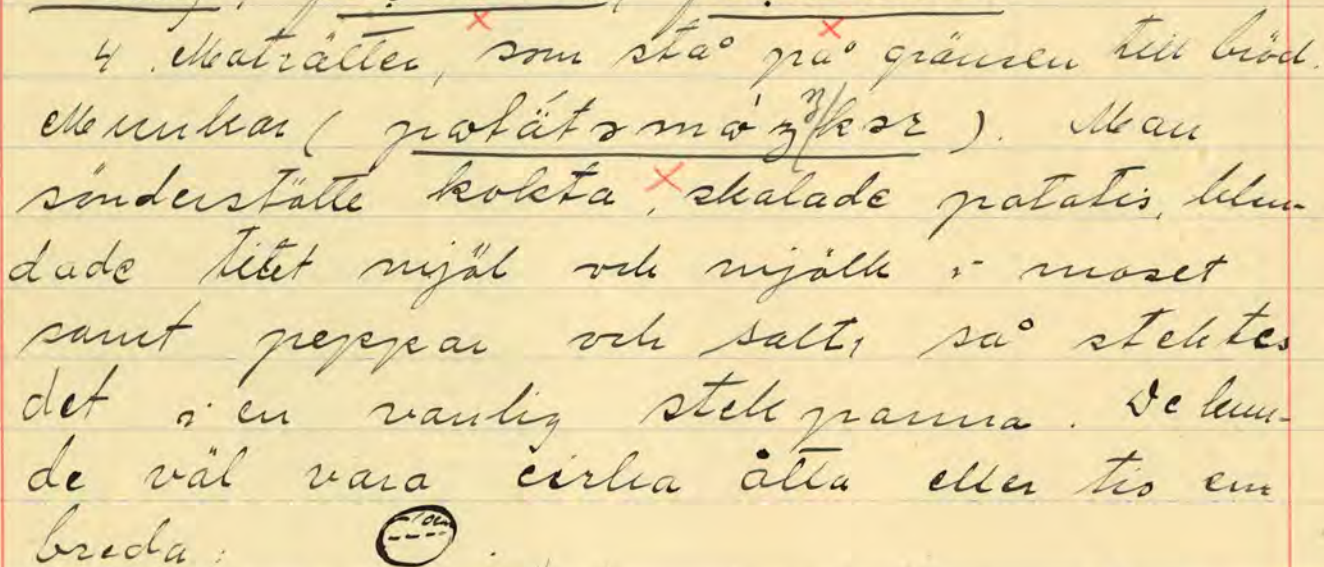 4. Maträtter, som stå på gränsen till bröd.
Munkar (potätsmóŋkər). Man
sönderstötte kokta, skalade potatis, blan-
dade litet mjöl och mjölk i moset
samt peppar och salt, så stektes
det i en vanlig stekpanna. De kun-
de väl vara cirka åtta eller tio cm
breda:
10cm